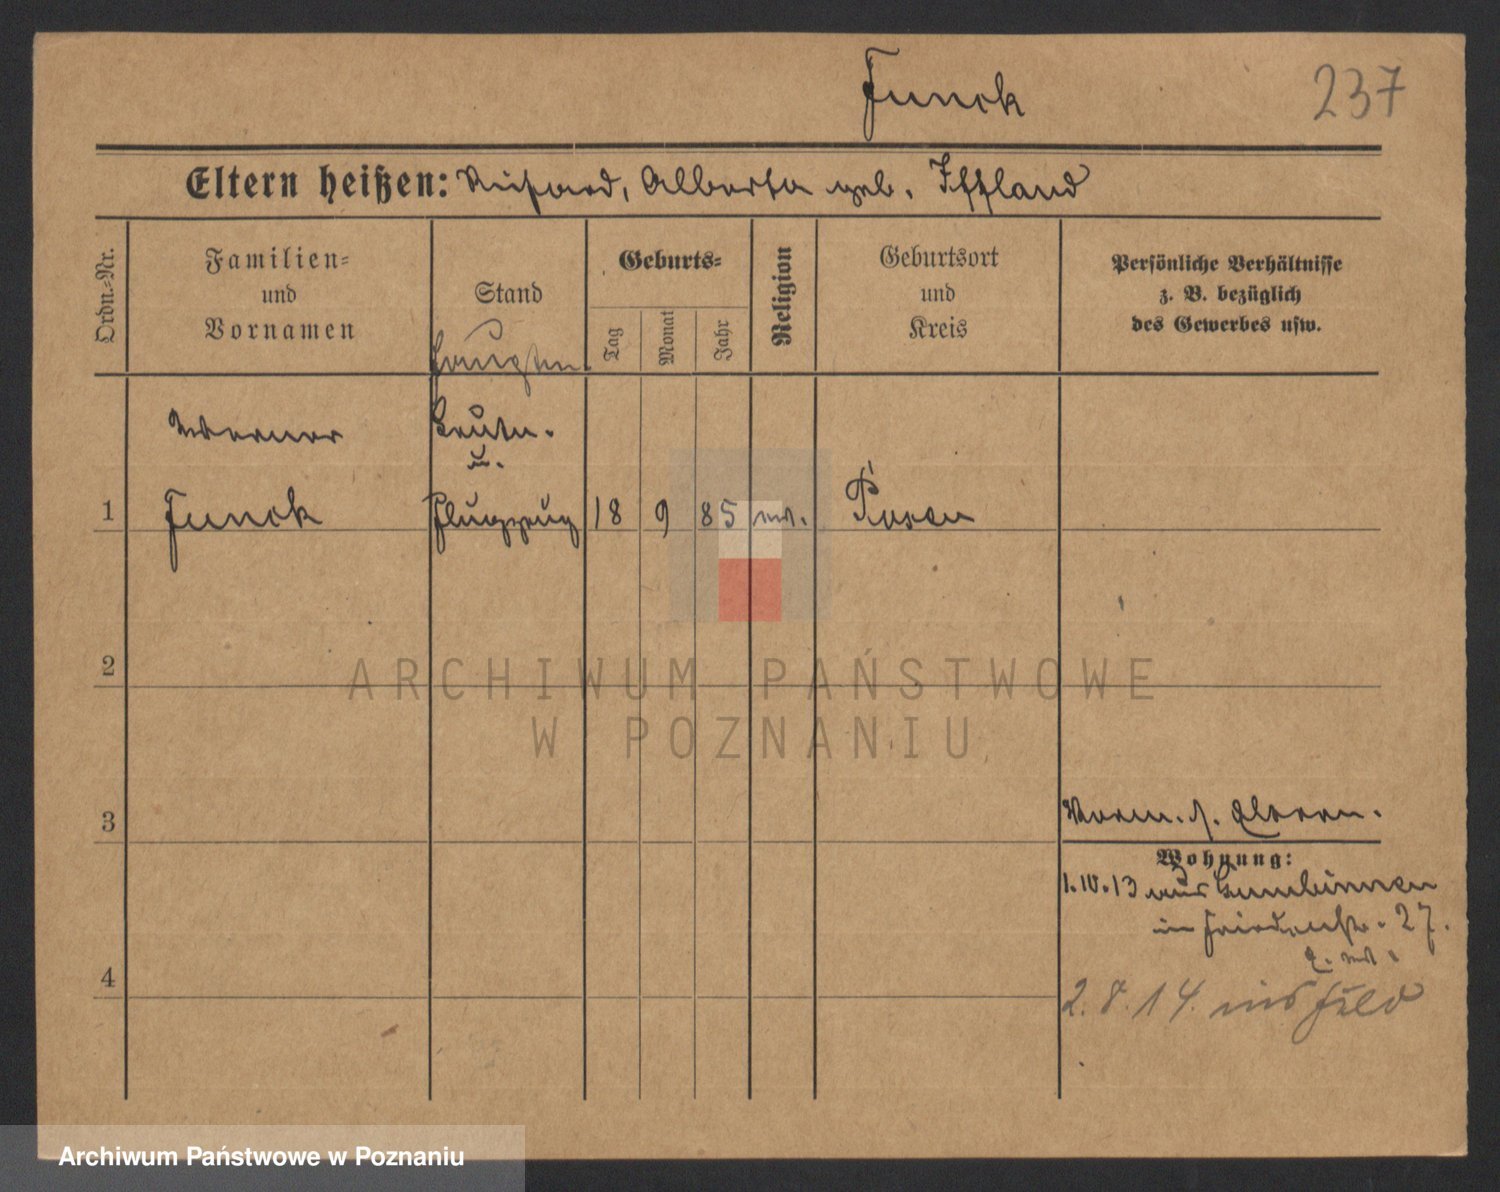 Funck
237
Eltern heißen: Richard, Alberta geb. Iffland
Ordn.-Nr.
Familien-
und
Vornamen
Stand
Geburts-
Tag
Monat
Jahr
Religion
Geburtsort
und
Kreis
Persönliche Verhältnisse
z. B. bezüglich
des Gewerbes usw.
Werner
Leutn.
u.
1
Funck
Flugzeug
18
9
85
ev.
Posen
2
3
4
Vorm. s. Eltern.
Wohnung:
1.10.13 aus Gumbinnen
in Friedenstr. 27.
2. 8. 14. ins Feld
ARCHIWUM PAŃSTWOWE
W POZNANIU
Archiwum Państwowe w Poznaniu